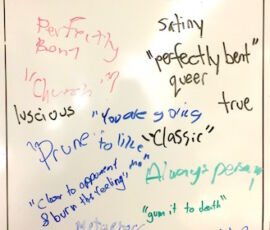 Perfectly
Bent
satiny
"perfectly bent"
queer
"Church"?
luscious
"You are going
to like
me"
true
"Prune"
"Classic"
"Close to opponent
& burn the feeling"
Always person
"gum it to death"
Metaphor